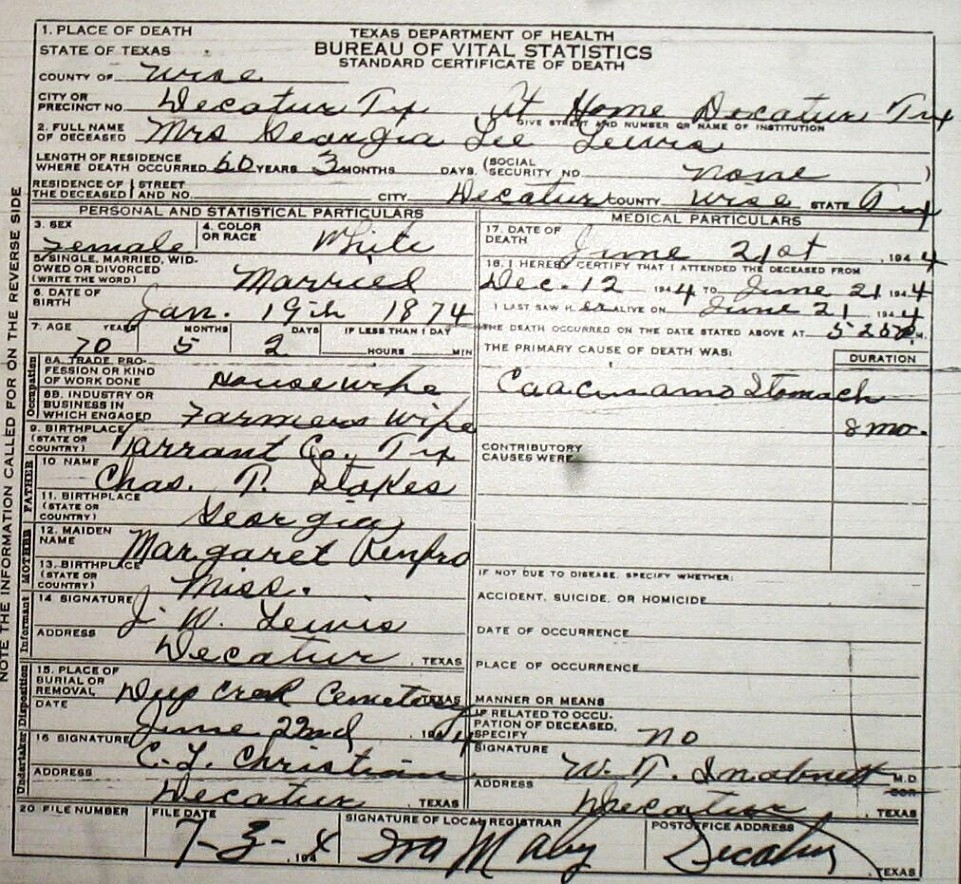 TEXAS DEPARTMENT OF HEALTH
BUREAU OF VITAL STATISTICS
STANDARD CERTIFICATE OF DEATH
1. PLACE OF DEATH
STATE OF TEXAS
COUNTY OF Wise
CITY OR PRECINCT NO. Decatur Tex At Home Decatur Tex
GIVE STREET AND NUMBER OR NAME OF INSTITUTION
2. FULL NAME OF DECEASED Mrs Georgia Lee Lewis
LENGTH OF RESIDENCE WHERE DEATH OCCURRED 60 YEARS 3 MONTHS DAYS. (SOCIAL SECURITY NO. none )
RESIDENCE OF THE DECEASED STREET AND NO. CITY Decatur COUNTY Wise STATE Tex
PERSONAL AND STATISTICAL PARTICULARS
3. SEX Female 4. COLOR OR RACE White
5. SINGLE, MARRIED, WIDOWED OR DIVORCED (WRITE THE WORD) Married
6. DATE OF BIRTH Jan. 19th 1874
7. AGE YEARS MONTHS DAYS IF LESS THAN 1 DAY
70 5 2 HOURS MIN
Occupation
8A. TRADE, PROFESSION OR KIND OF WORK DONE House wife
8B. INDUSTRY OR BUSINESS IN WHICH ENGAGED Farmers Wife
9. BIRTHPLACE (STATE OR COUNTRY) Tarrant Co, Tex
FATHER
10 NAME Chas. T. Stokes
11. BIRTHPLACE (STATE OR COUNTRY) Georgia
MOTHER
12. MAIDEN NAME Margaret Renfro
13. BIRTHPLACE (STATE OR COUNTRY) Miss.
Informant
14 SIGNATURE J. W. Lewis
ADDRESS Decatur, TEXAS
Disposition
15. PLACE OF BURIAL OR REMOVAL Deep Creek Cemetery TEXAS
DATE June 22nd, 1944
Undertaker
16 SIGNATURE C. L. Christian
ADDRESS Decatur, TEXAS
MEDICAL PARTICULARS
17. DATE OF DEATH June 21st, 1944
18. I HEREBY CERTIFY THAT I ATTENDED THE DECEASED FROM
Dec. 12 1944 TO June 21 1944
I LAST SAW H er ALIVE ON June 21 1944
THE DEATH OCCURRED ON THE DATE STATED ABOVE AT M.
THE PRIMARY CAUSE OF DEATH WAS: DURATION
Stomach
8 mo.
CONTRIBUTORY CAUSES WERE
IF NOT DUE TO DISEASE, SPECIFY WHETHER:
ACCIDENT, SUICIDE, OR HOMICIDE
DATE OF OCCURRENCE
PLACE OF OCCURRENCE
MANNER OR MEANS
IF RELATED TO OCCUPATION OF DECEASED, SPECIFY no
SIGNATURE W. T. Inabnett M.D.
ADDRESS Decatur, TEXAS
20. FILE NUMBER FILE DATE SIGNATURE OF LOCAL REGISTRAR POSTOFFICE ADDRESS
7-3-, 1944 Decatur, TEXAS
NOTE THE INFORMATION CALLED FOR ON THE REVERSE SIDE